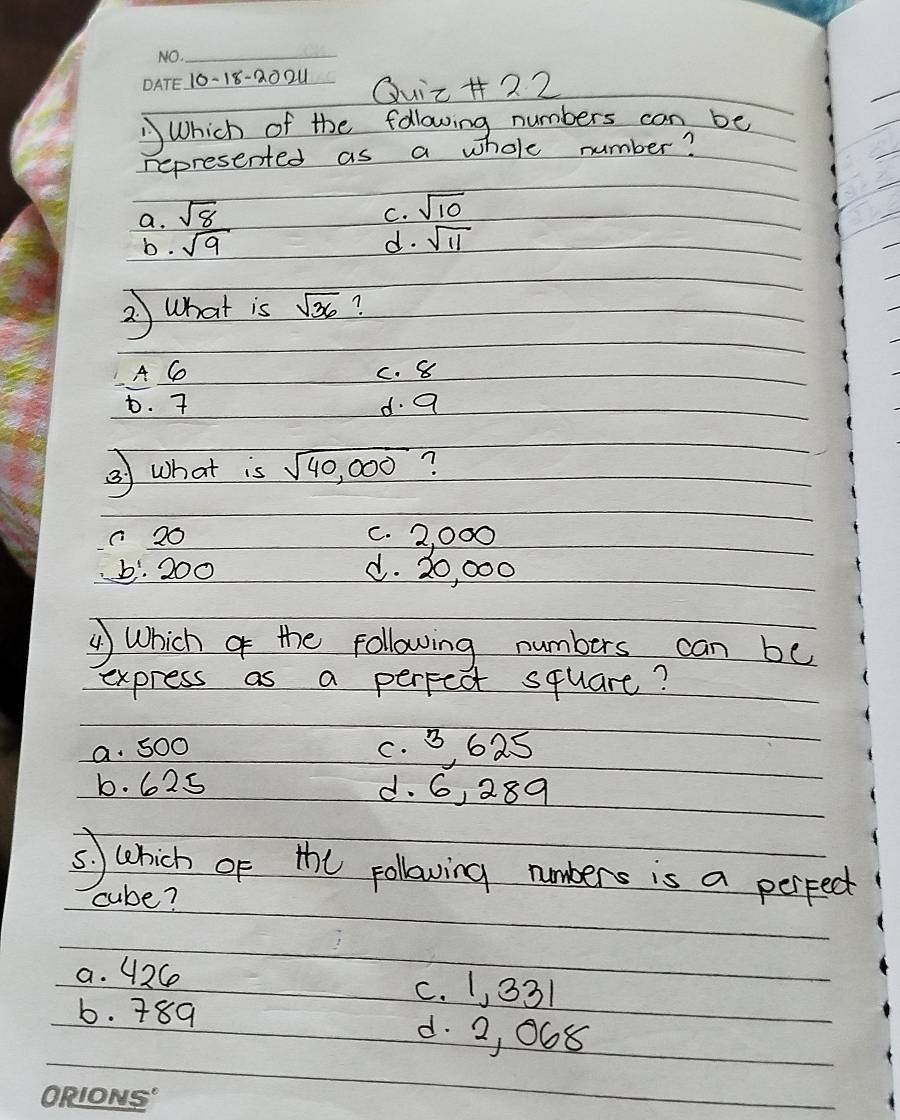 NO.
DATE 10-18-2024
Quiz # 22
1.) Which of the following numbers can be
represented as a whole number?
a. √8 c. √10
b. √9 d. √11
2.) What is √36 ?
A 6 c. 8
b. 7 d. 9
3.) What is √40,000 ?
a 20 c. 2,000
b. 200 d. 20,000
4.) Which of the following numbers can be
express as a perfect square?
a. 500 c. 3,625
b. 625 d. 6,289
5.) Which of the following numbers is a perfect
cube?
a. 426 c. 1,331
b. 789 d. 2,068
ORIONS®